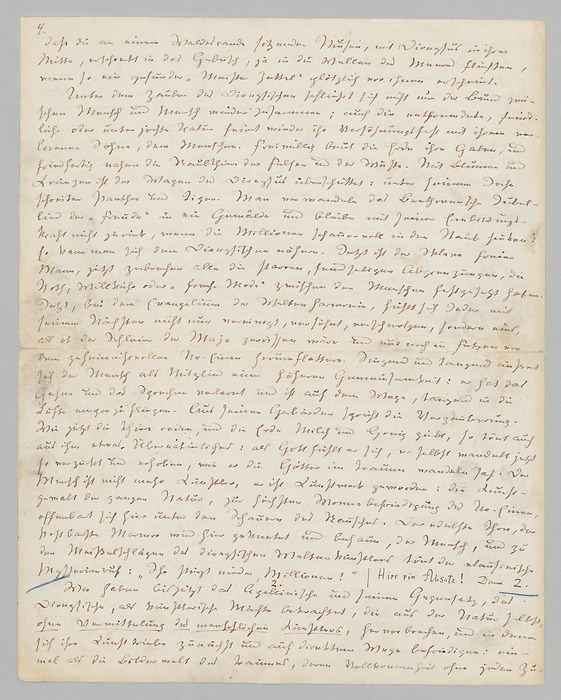 4.
daß du an einem Waldesrande sitzenden Musen, mit Dionysus in ihrer
Mitte, erschreckt in das Gebüsch, ja in die Wellen des Meeres flüchten,
wenn so ein gesunder „Meister Zettel“ plötzlich vor ihnen erscheint.
Unter dem Zauber des Dionysischen schließt sich nicht nur der Bund zwi-
schen Mensch und Mensch wieder zusammen: auch die entfremdete, feind-
liche oder unterjochte Natur feiert wieder ihr Versöhnungsfest mit ihrem ver-
lorenen Sohne, dem Menschen. Freiwillig beut die Erde ihre Gaben, und
friedfertig nahen die Raubthiere der Felsen und der Wüste. Mit Blumen und
Kränzen ist der Wagen des Dionysus überschüttet: unter seinem Joche
schreiten Panther und Tiger. Man verwandele das Beethovensche Jubel-
lied der „Freude“ in ein Gemälde und bleibe mit seiner Einbildungs-
kraft nicht zurück, wenn die Millionen schauervoll in den Staub sinken:
so kann man sich dem Dionysischen nähern. Jetzt ist der Sklave freier
Mann, jetzt zerbrechen alle die starren, feindseligen Abgrenzungen, die
Noth, Willkür oder „freche Mode“ zwischen den Menschen festgesetzt haben.
Jetzt, bei dem Evangelium der Weltenharmonie, fühlt sich Jeder mit
seinem Nächsten nicht nur vereinigt, versöhnt, verschmolzen, sondern eins,
als ob der Schleier der Maja zerrissen wäre und nur noch in Fetzen vor
dem geheimnißvollen Ur-Einen herumflattere. Singend und tanzend äußert
sich der Mensch als Mitglied einer höheren Gemeinsamkeit: er hat das
Gehen und das Sprechen verlernt und ist auf dem Wege, tanzend in die
Lüfte emporzufliegen. Aus seinen Gebärden spricht die Verzauberung.
Wie jetzt die Thiere reden, und die Erde Milch und Honig giebt, so tönt auch
aus ihm etwas Übernatürliches: als Gott fühlt er sich, er selbst wandelt jetzt
so verzückt und erhoben, wie er die Götter im Traume wandeln sah. Der
Mensch ist nicht mehr Künstler, er ist Kunstwerk geworden: die Kunst-
gewalt der ganzen Natur, zur höchsten Wonnebefriedigung des Ur-Einen,
offenbart sich hier unter den Schauern des Rausches. Der edelste Thon, der
kostbarste Marmor wird hier geknetet und behauen, der Mensch, und zu
den Meißelschlägen des dionysischen Weltenkünstlers tönt der eleusinische
Mysterienruf: „Ihr stürzt nieder, Millionen!“ | Hier ein Absatz! Dann 2.
2.
Wir haben bis jetzt das Apollinische und seinen Gegensatz, das
Dionysische, als künstlerische Mächte betrachtet, die aus der Natur selbst,
ohne Vermittelung des menschlichen Künstlers, hervorbrechen, und in denen
sich ihre Kunsttriebe zunächst und auf direktem Wege befriedigen: ein-
mal als die Bilderwelt des Traumes, deren Vollkommenheit ohne jeden Zu-